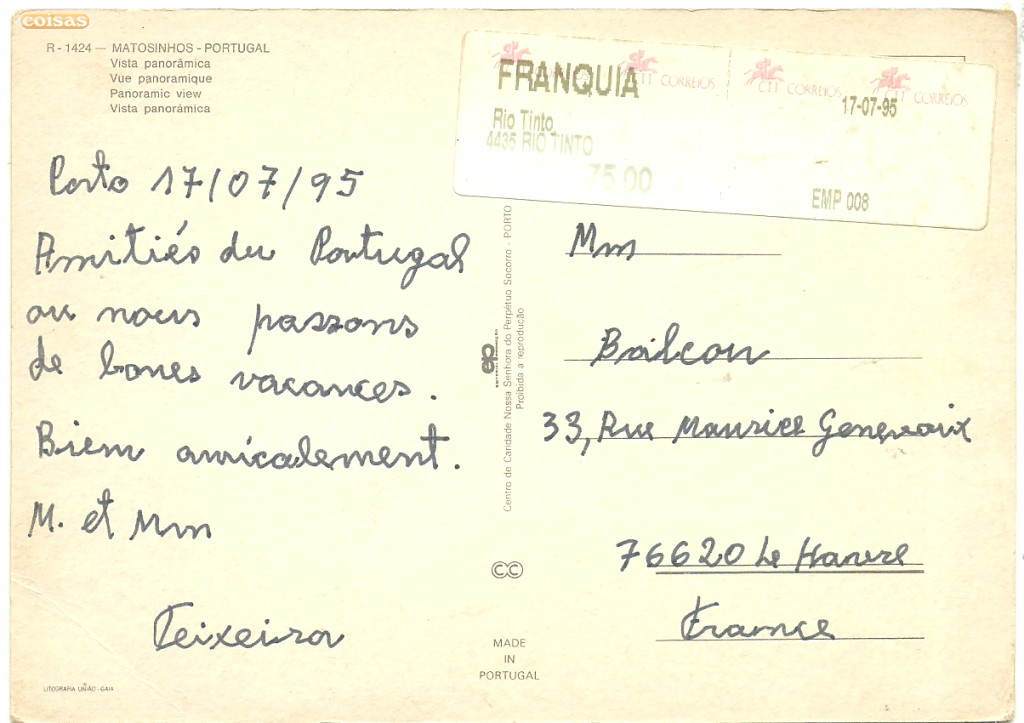 coisas
R - 1424 — MATOSINHOS - PORTUGAL
Vista panorâmica
Vue panoramique
Panoramic view
Vista panorámica
FRANQUIA
CTT CORREIOS
CTT CORREIOS
CTT CORREIOS
17-07-95
Rio Tinto
4435 RIO TINTO
75.00
EMP 008
Porto 17/07/95
Amitiés du Portugal
ou nous passons
de bones vacances.
Biem amicalement.
M. et Mm
Teixeira
Centro de Caridade Nossa Senhora do Perpétuo Socorro - PORTO
Proibida a reprodução
Mm
Balcon
33, Rue Maurice Genevoix
76620 Le Havre
France
CC
MADE
IN
PORTUGAL
LITOGRAFIA UNIÃO - GAIA